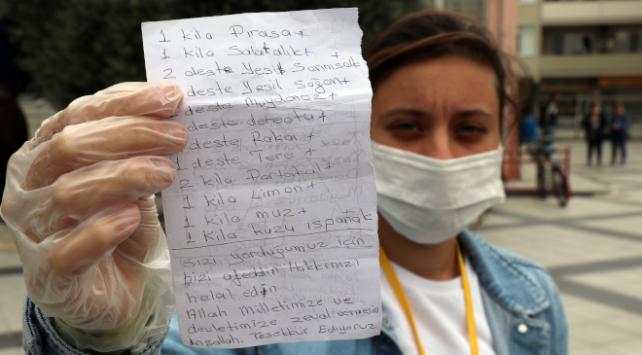 1 kilo Pırasa+
1 kilo Salatalık+ +
2 deste Yeşil Sarımsak
deste Yeşil Soğan+
deste Maydonoz+
deste dereotu+
deste Roka+
1 deste Tere +
2 kilo Portakal
1 kilo Limon+
1 kilo muz+
1 kilo kuzu ıspanak
Sizi yorduğumuz için
bizi affedin Hakkınızı
helal edin
Allah milletimize ve
devletimize zeval vermesin
İnşallah. Teşekkür Ediyoruz